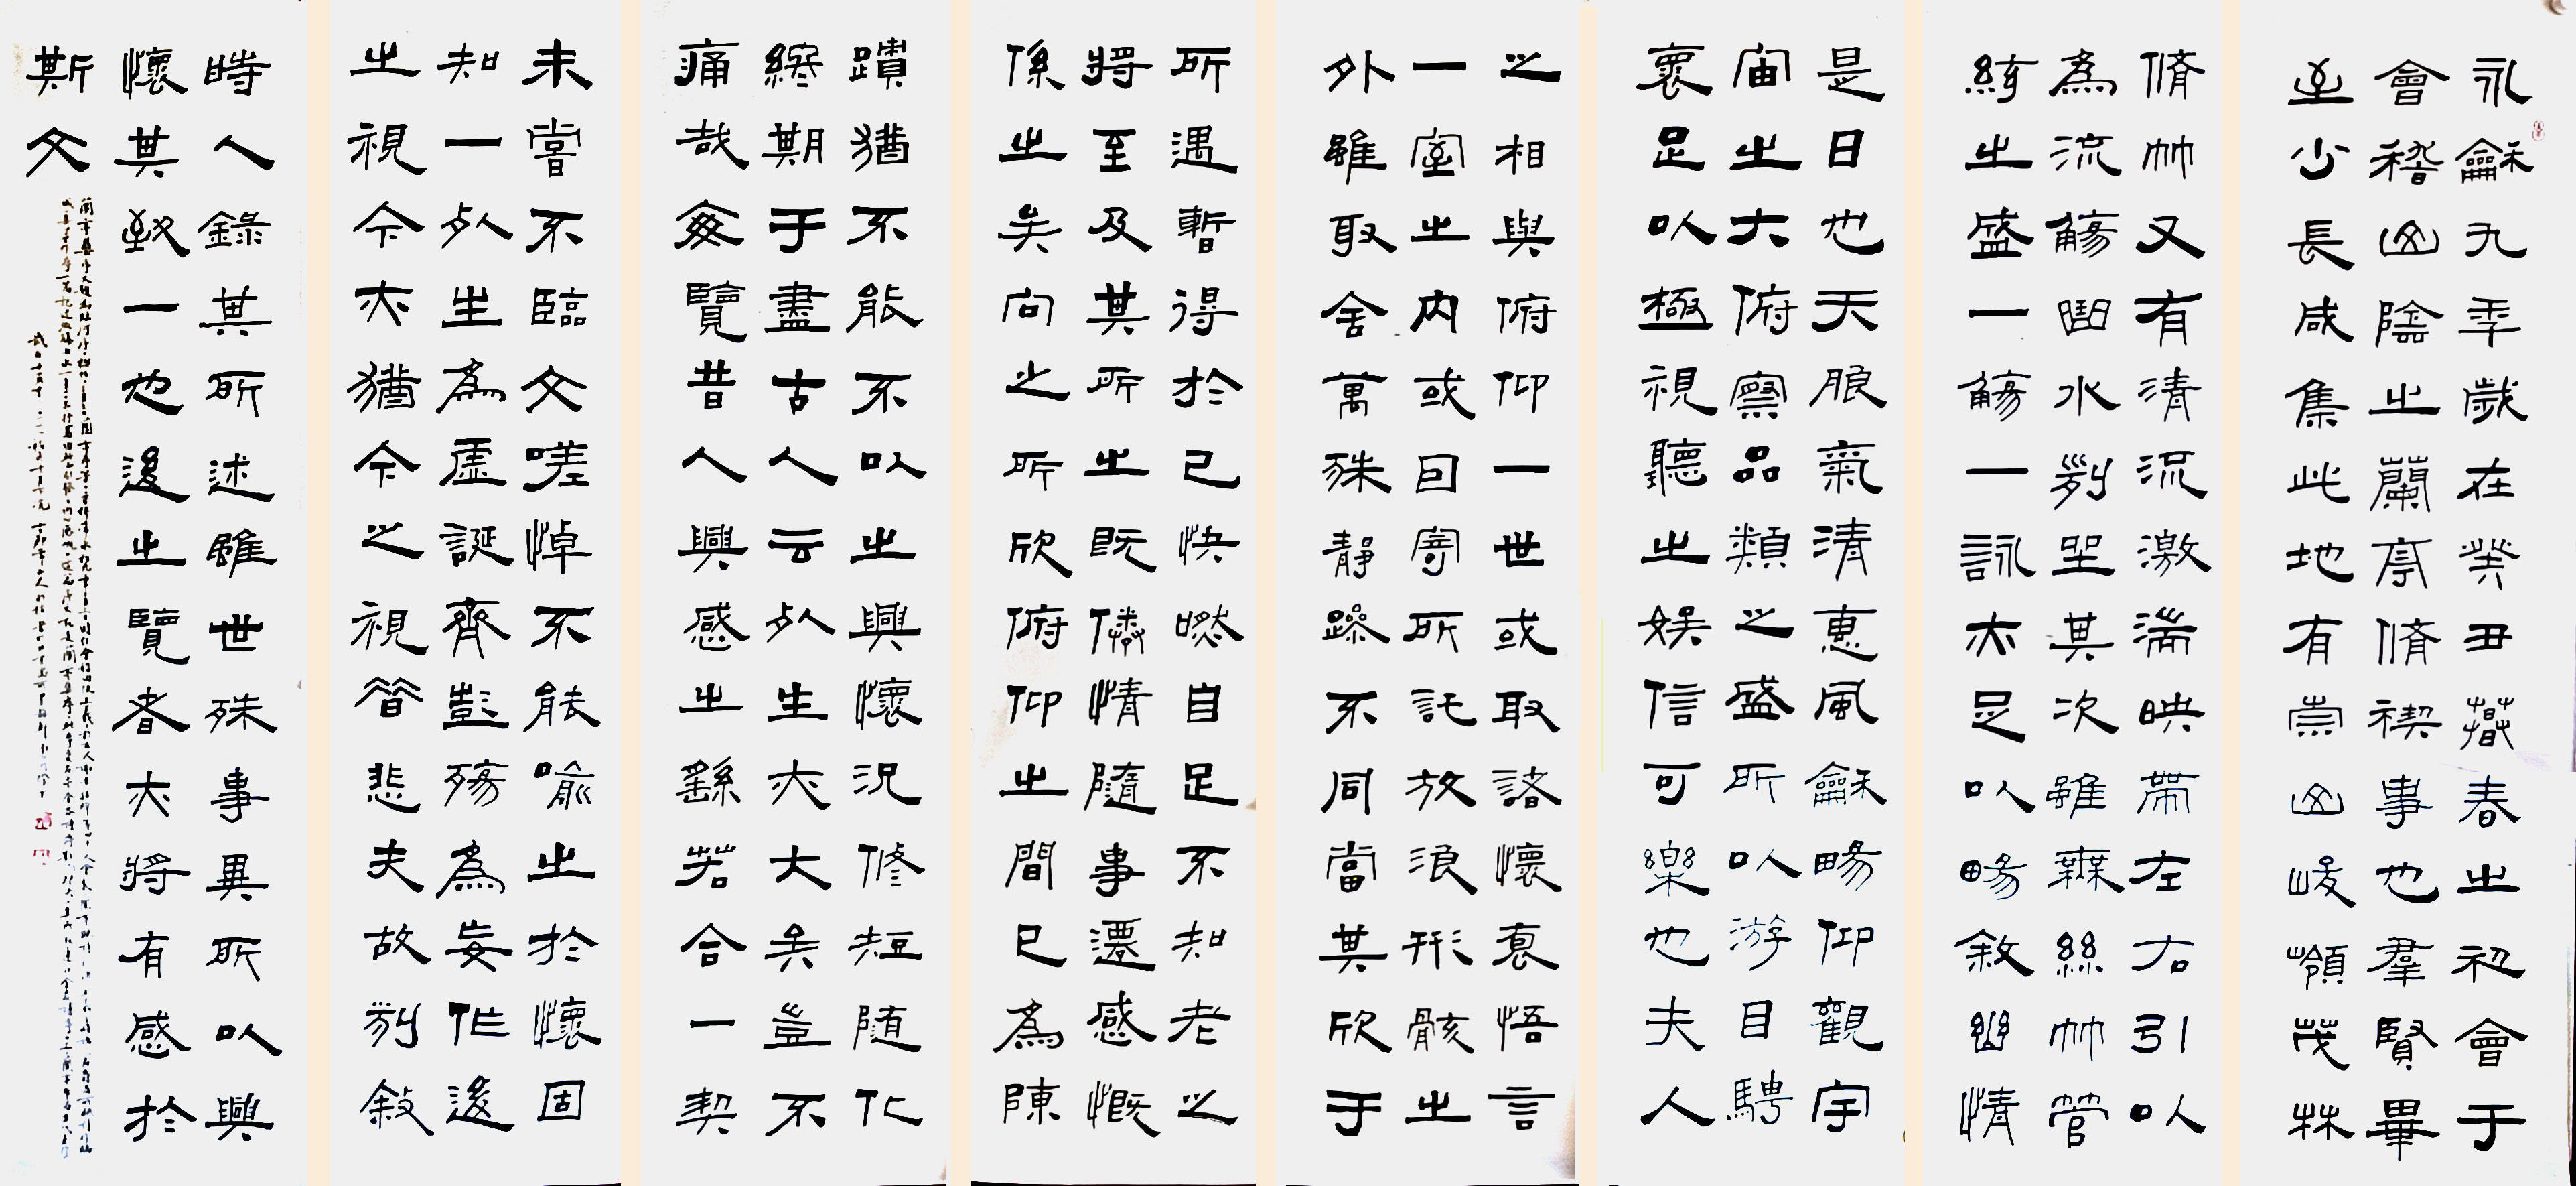 永龢九年歲在癸丑暮春之初會于
會稽山陰之蘭亭脩禊事也羣賢畢
至少長咸集此地有崇山峻嶺茂林
脩竹又有清流激湍映帶左右引以
為流觴曲水列坐其次雖無絲竹管
絃之盛一觴一詠亦足以暢敘幽情
是日也天朗氣清惠風龢暢仰觀宇
宙之大俯察品類之盛所以游目騁
褱足以極視聽之娛信可樂也夫人
之相與俯仰一世或取諸懷袌悟言
一室之內或因寄所託放浪形骸之
外雖取舍萬殊靜躁不同當其欣于
所遇暫得於己快然自足不知老之
將至及其所之既倦情隨事遷感慨
係之矣向之所欣俯仰之間已為陳
蹟猶不能不以之興懷況修短隨化
終期于盡古人云死生亦大矣豈不
痛哉每覽昔人興感之繇若合一契
未嘗不臨文嗟悼不能喻之於懷固
知一死生為虛誕齊彭殤為妄作後
之視今亦猶今之視昔悲夫故列敘
時人錄其所述雖世殊事異所以興
懷其致一也後之覽者亦將有感於
斯文